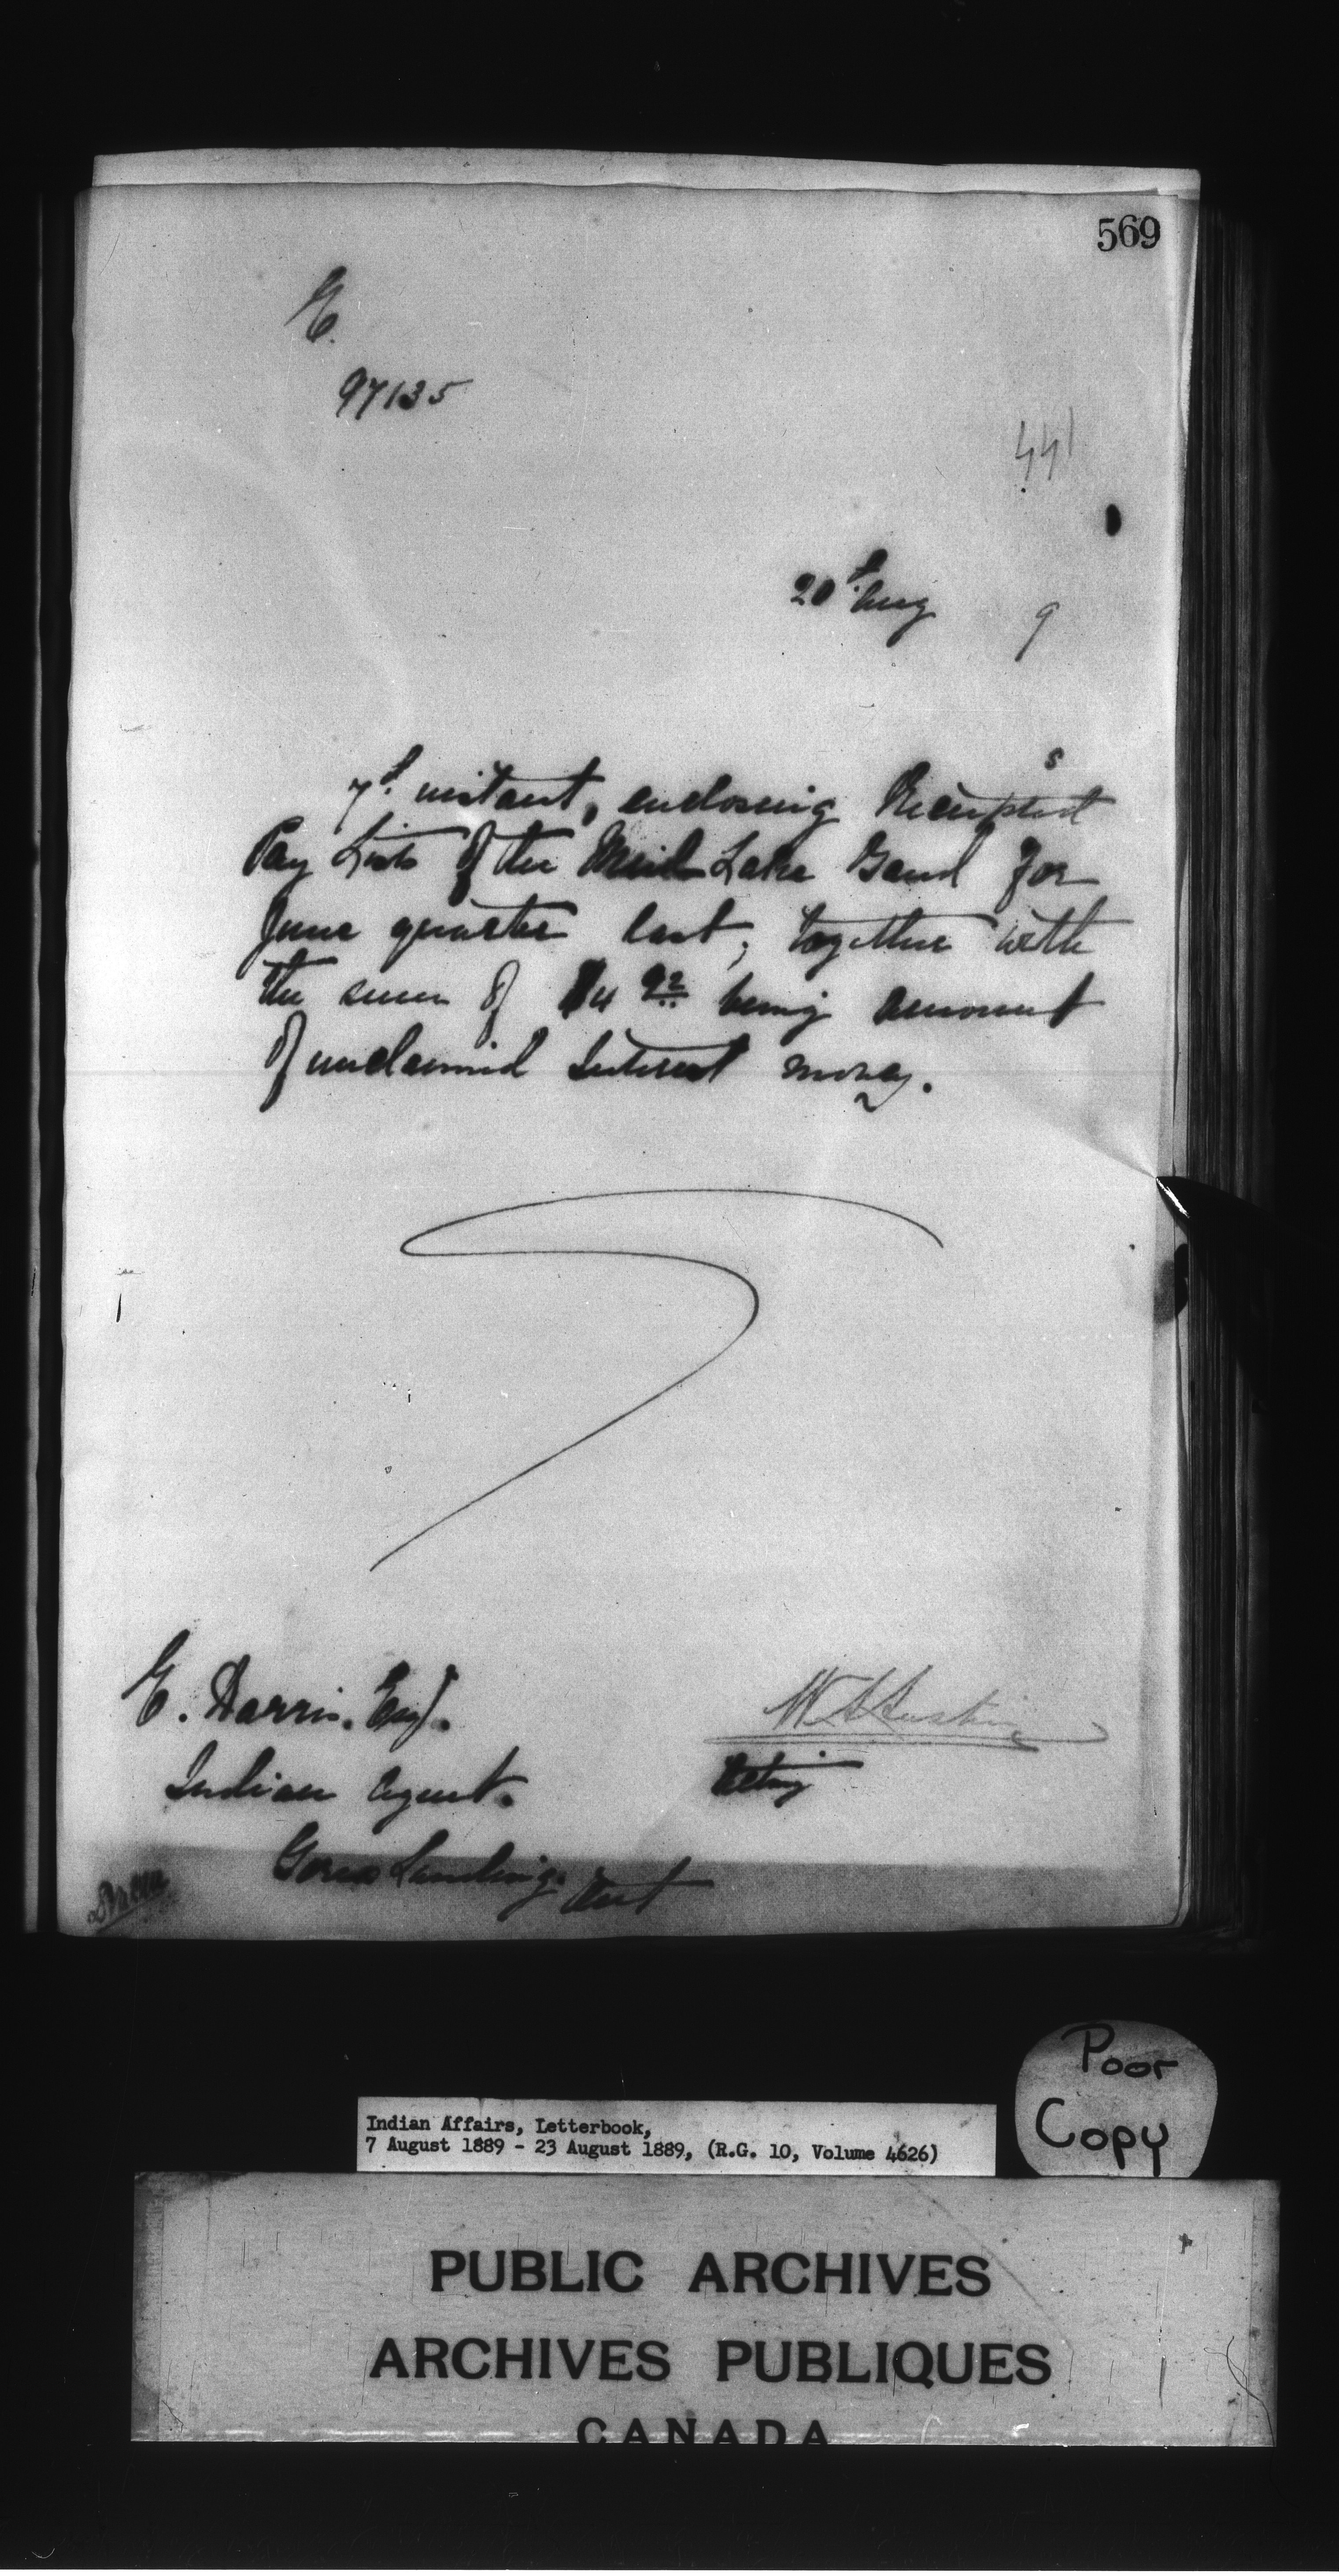 569
E.
97135
441
20th Aug 9
s
7th instant, enclosing Receipted
Pay Lists of the Mud Lake Band for
June quarter last, together with
the sum of $4 92 being amount
of unclaimed Interest money.
E. Harris. Esq.
W A Austin
Indian Agent.
Acting
Gores Landing. Ont
Poor
Copy
Indian Affairs, Letterbook,
7 August 1889 - 23 August 1889, (R.G. 10, Volume 4626)
PUBLIC ARCHIVES
ARCHIVES PUBLIQUES
CANADA